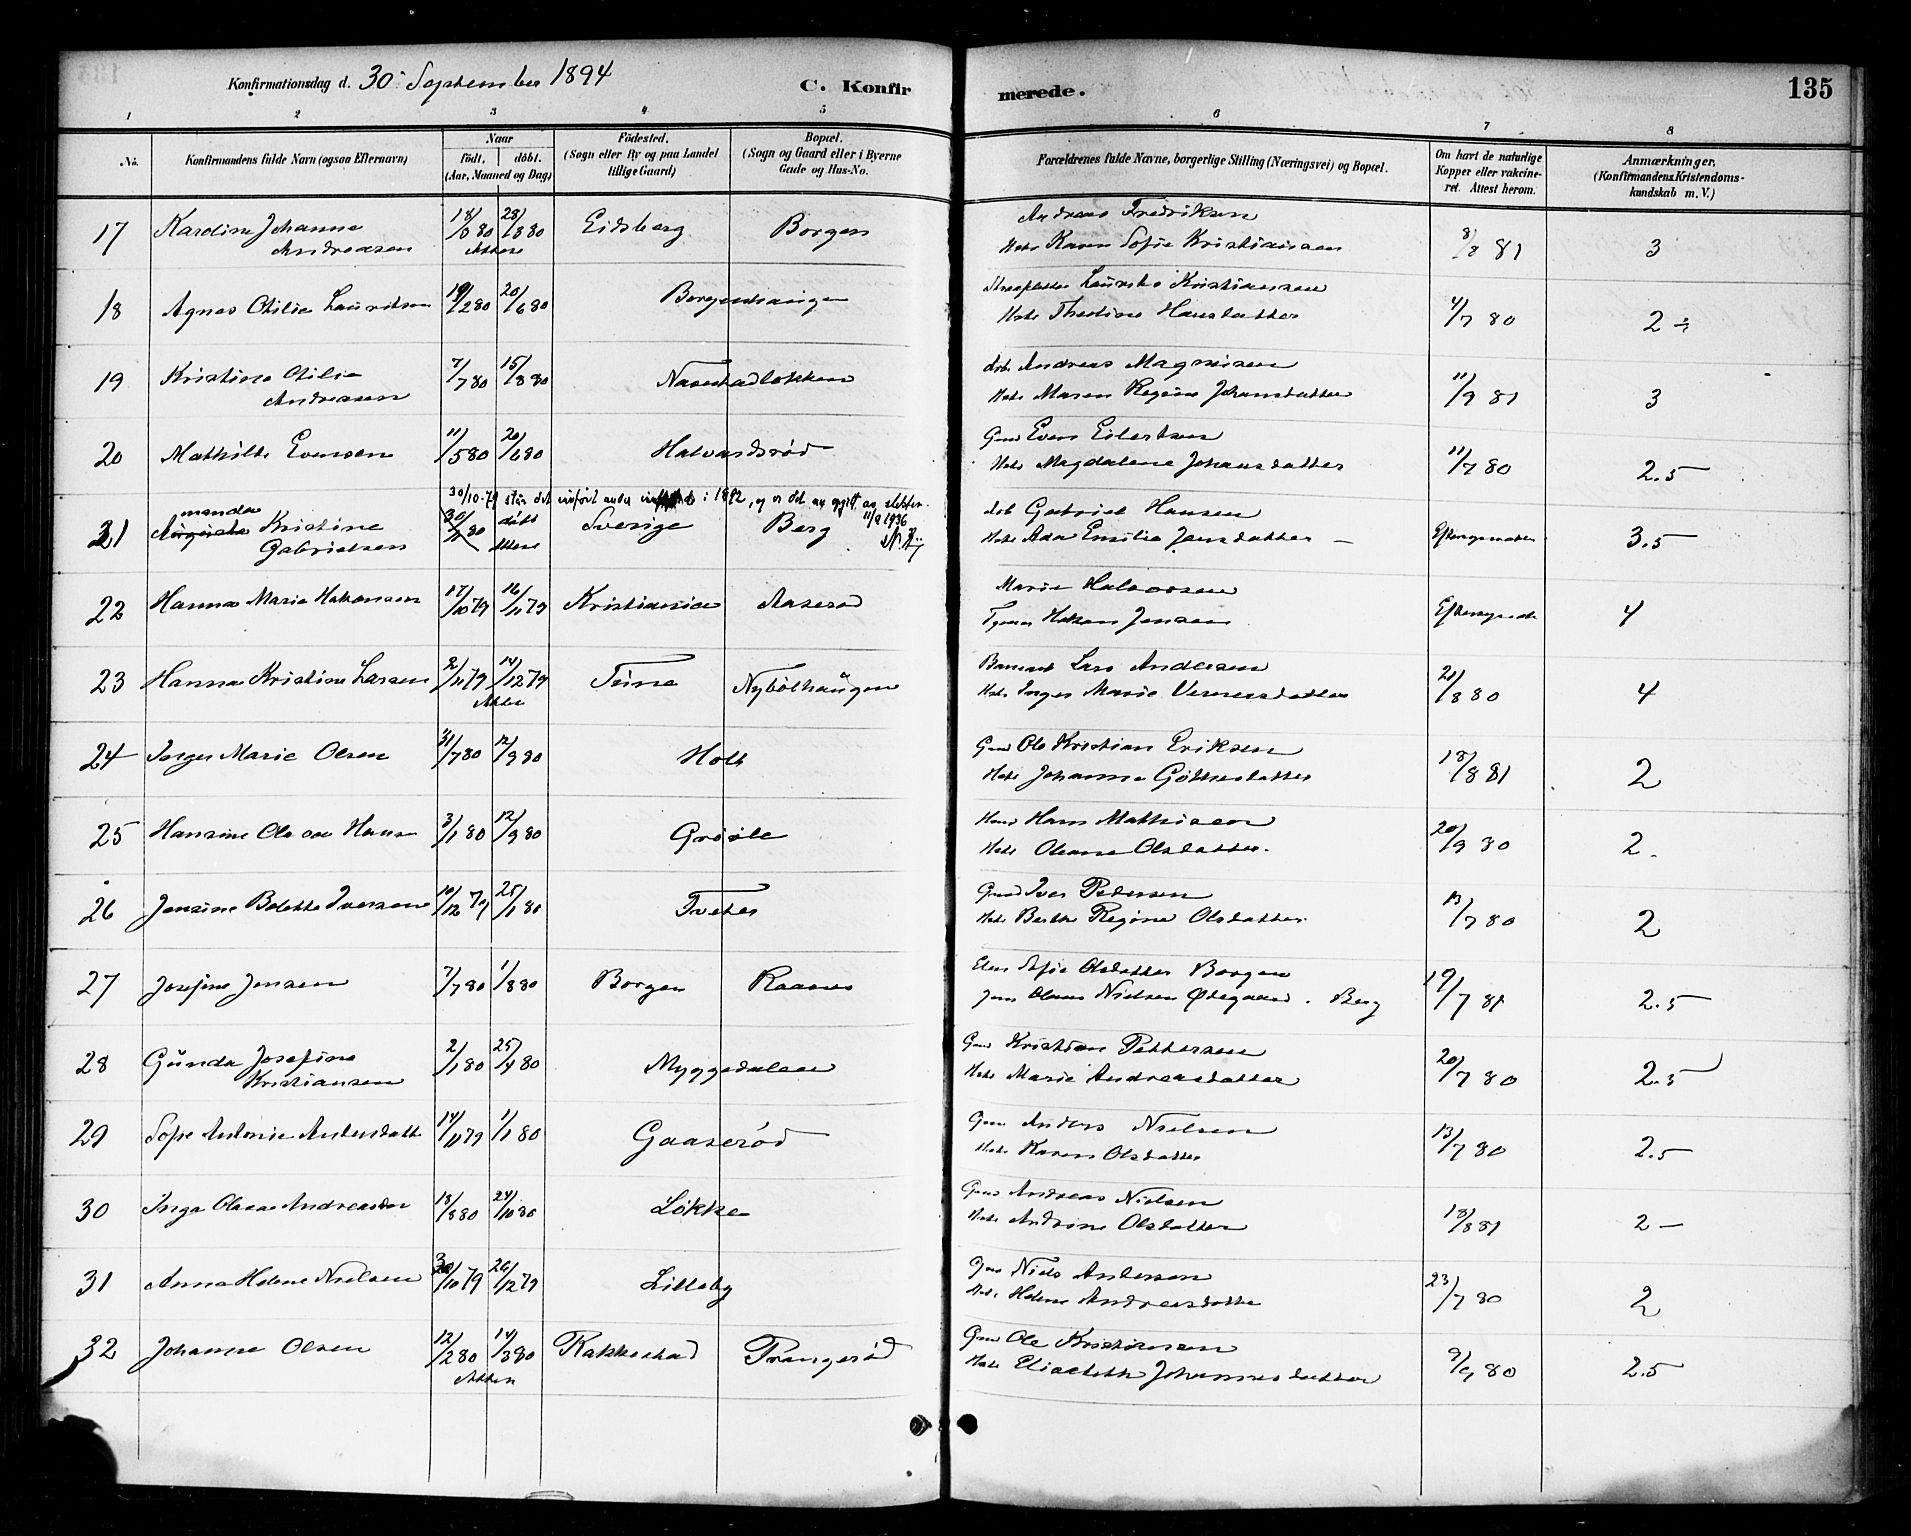 Konfirmationsdag d. 30 September 1894
C. Konfirmerede.
135
1 2 3 4 5 6 7 8
No.
Konfirmandens fulde Navn (ogsaa Efternavn)
Naar
født. døbt.
(Aar, Maaned og Dag)
Fødested.
(Sogn eller By og paa Landet
tillige Gaard)
Bopæl.
(Sogn og Gaard eller i Byerne
Gade og Hus-No.
Forældrenes fulde Navne, borgerlige Stilling (Næringsvei) og Bopæl.
Om havt de naturlige
Kopper eller vakcine-
ret. Attest herom.
Anmærkninger,
(Konfirmandens Kristendoms-
kundskab m. V.)
17 Karoline Johanne 18/8 80 28/8 80 Eidsberg Borgen Andreas Fredriksen
Andreasen Attest Hst. Karen Sofie Kristiansen 8/8 81 3
18 Agnes Otilie Lauritsen 19/2 80 20/6 80 Borgenhaugen Laurits Kristiansen
Hst. Theoline Hansdatter 4/7 80 2 ÷
19 Kristine Otilie 7/7 80 15/8 80 Navestadløkken Arb. Andreas Magnusen
Andreasen Hst. Maren Regine Johansdatter 11/9 81 3
20 Mathilde Evensen 11/5 80 20/6 80 Halvardsrød Gmd Even Eilertsen
Hst. Magdalene Johansdatter 11/7 80 2.5
30/10-79 står det innført under i 1892, og er det av opgitt av slekten
11/9 1936
21 manda Kristine 30/11 80 døbt Sverige Berg Arb Gabriel Hansen
Gabrielsen Attest Hst. Ada Emilie Jansdatter 3.5
22 Hanna Marie Hakonsen 17/10 79 16/11 79 Kristiania Aaserød Marie Halvorsen
Hakon Jensen 4
23 Hanna Kristine Larsen 2/11 79 14/12 79 Tune Nybølhaugen Lars Andersen
Attest Hst. Inger Marie Vernersdatter 21/8 80 4
24 Inger Marie Olsen 31/7 80 12/9 80 Holt Gmd Ole Kristian Eriksen
Hst. Johanne Gøttesdatter 18/8 81 2
25 Hansine Olava Hans 3/1 80 12/9 80 Hans Mathisen
Hst. Oleane Olsdatter. 20/9 80 2.
26 Jensine Bolette Iversen 10/12 79 25/1 80 Tveter Gmd Iver Pedersen
Hst. Berthe Regine Olsdatter 13/7 80 2
27 Josefine Jensen 7/7 80 1/8 80 Borgen Elen Sofie Olsdatter Borgen
Jens Olaus Nielsen Ødegaard. Berg 19/7 81 2.5
28 Gunda Josefine 2/1 80 25/4 80 Myggedalen Gmd Kristian Pettersen
Kristiansen Hst. Marie Andreasdatter 20/7 80 2.5
29 Sofie Antonie Andersdatt 14/11 79 1/1 80 Gaaserød Gmd Anders Nielsen
Hst. Karen Olsdatter 13/7 80 2.5
30 Inga Olava Andreasen 18/8 80 24/10 80 Løkke Gmd Andreas Nielsen
Hst. Andrine Olsdatter 18/8 81 2 –
31 Anna Helene Nielsen 30/10 79 26/12 79 Lilleby Gmd Niels Andersen
Hst. Helene Andreasdatte 23/7 80 2
32 Johanne Olsen 12/2 80 14/3 80 Rakkestad Prangerød Gmd Ole Kristiansen
Attest Hst. Elisabeth Johannesdatter 9/9 80 2.5